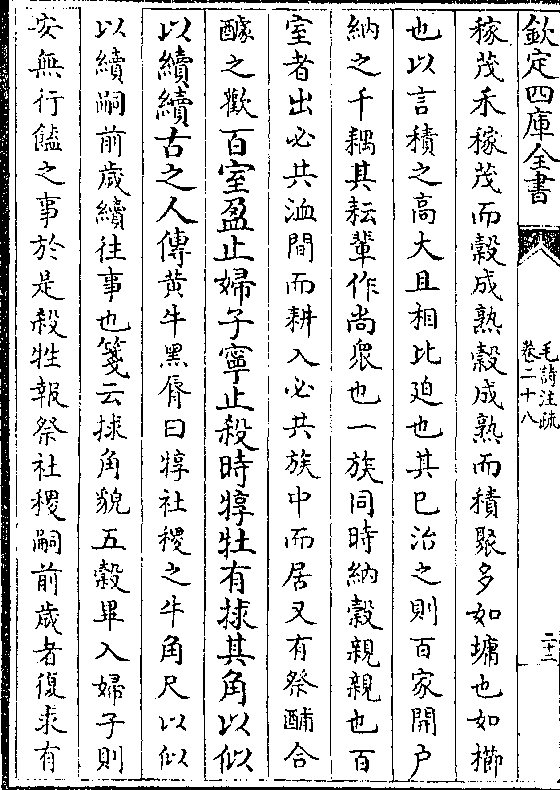 欽定四庫全書
毛詩注疏
卷二十八
二十二
稼茂禾稼茂而穀成熟穀成熟而積聚多如墉也如櫛
也以言積之高大且相比廹也其已治之則百家開户
納之千耦其耘輩作尚衆也一族同時納穀親親也百
室者出必共洫間而耕入必共族中而居又有祭酺合
醵之歡百室盈止婦子寧止殺時犉牡有捄其角以似
以續續古之人傳黄牛黑脣曰犉社稷之牛角尺以似
以續嗣前歲續往事也箋云捄角貌五穀畢入婦子則
安無行饁之事於是殺牲報祭社稷嗣前歲者復求有